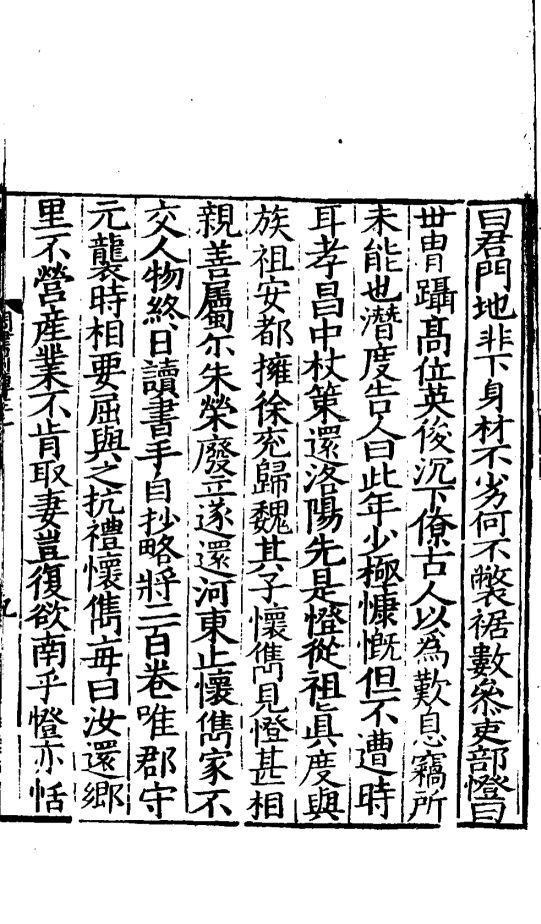 曰君門地非下身材不劣何不㡀裾數參吏部憕曰
世胄躡高位英俊沉下僚古人以為歎息竊所
未能也潛度告人曰此年少極慷慨但不遭時
耳孝昌中杖策還洛陽先是憕從祖真度與
族祖安都擁徐兖歸魏其子懷儁見憕甚相
親善屬尒朱榮廢立遂還河東止懷儁家不
交人物終日讀書手自抄略將二百卷唯郡守
元襲時相要屈與之抗禮懷儁每曰汝還鄉
里不營產業不肯取妻豈復欲南乎憕亦恬
九